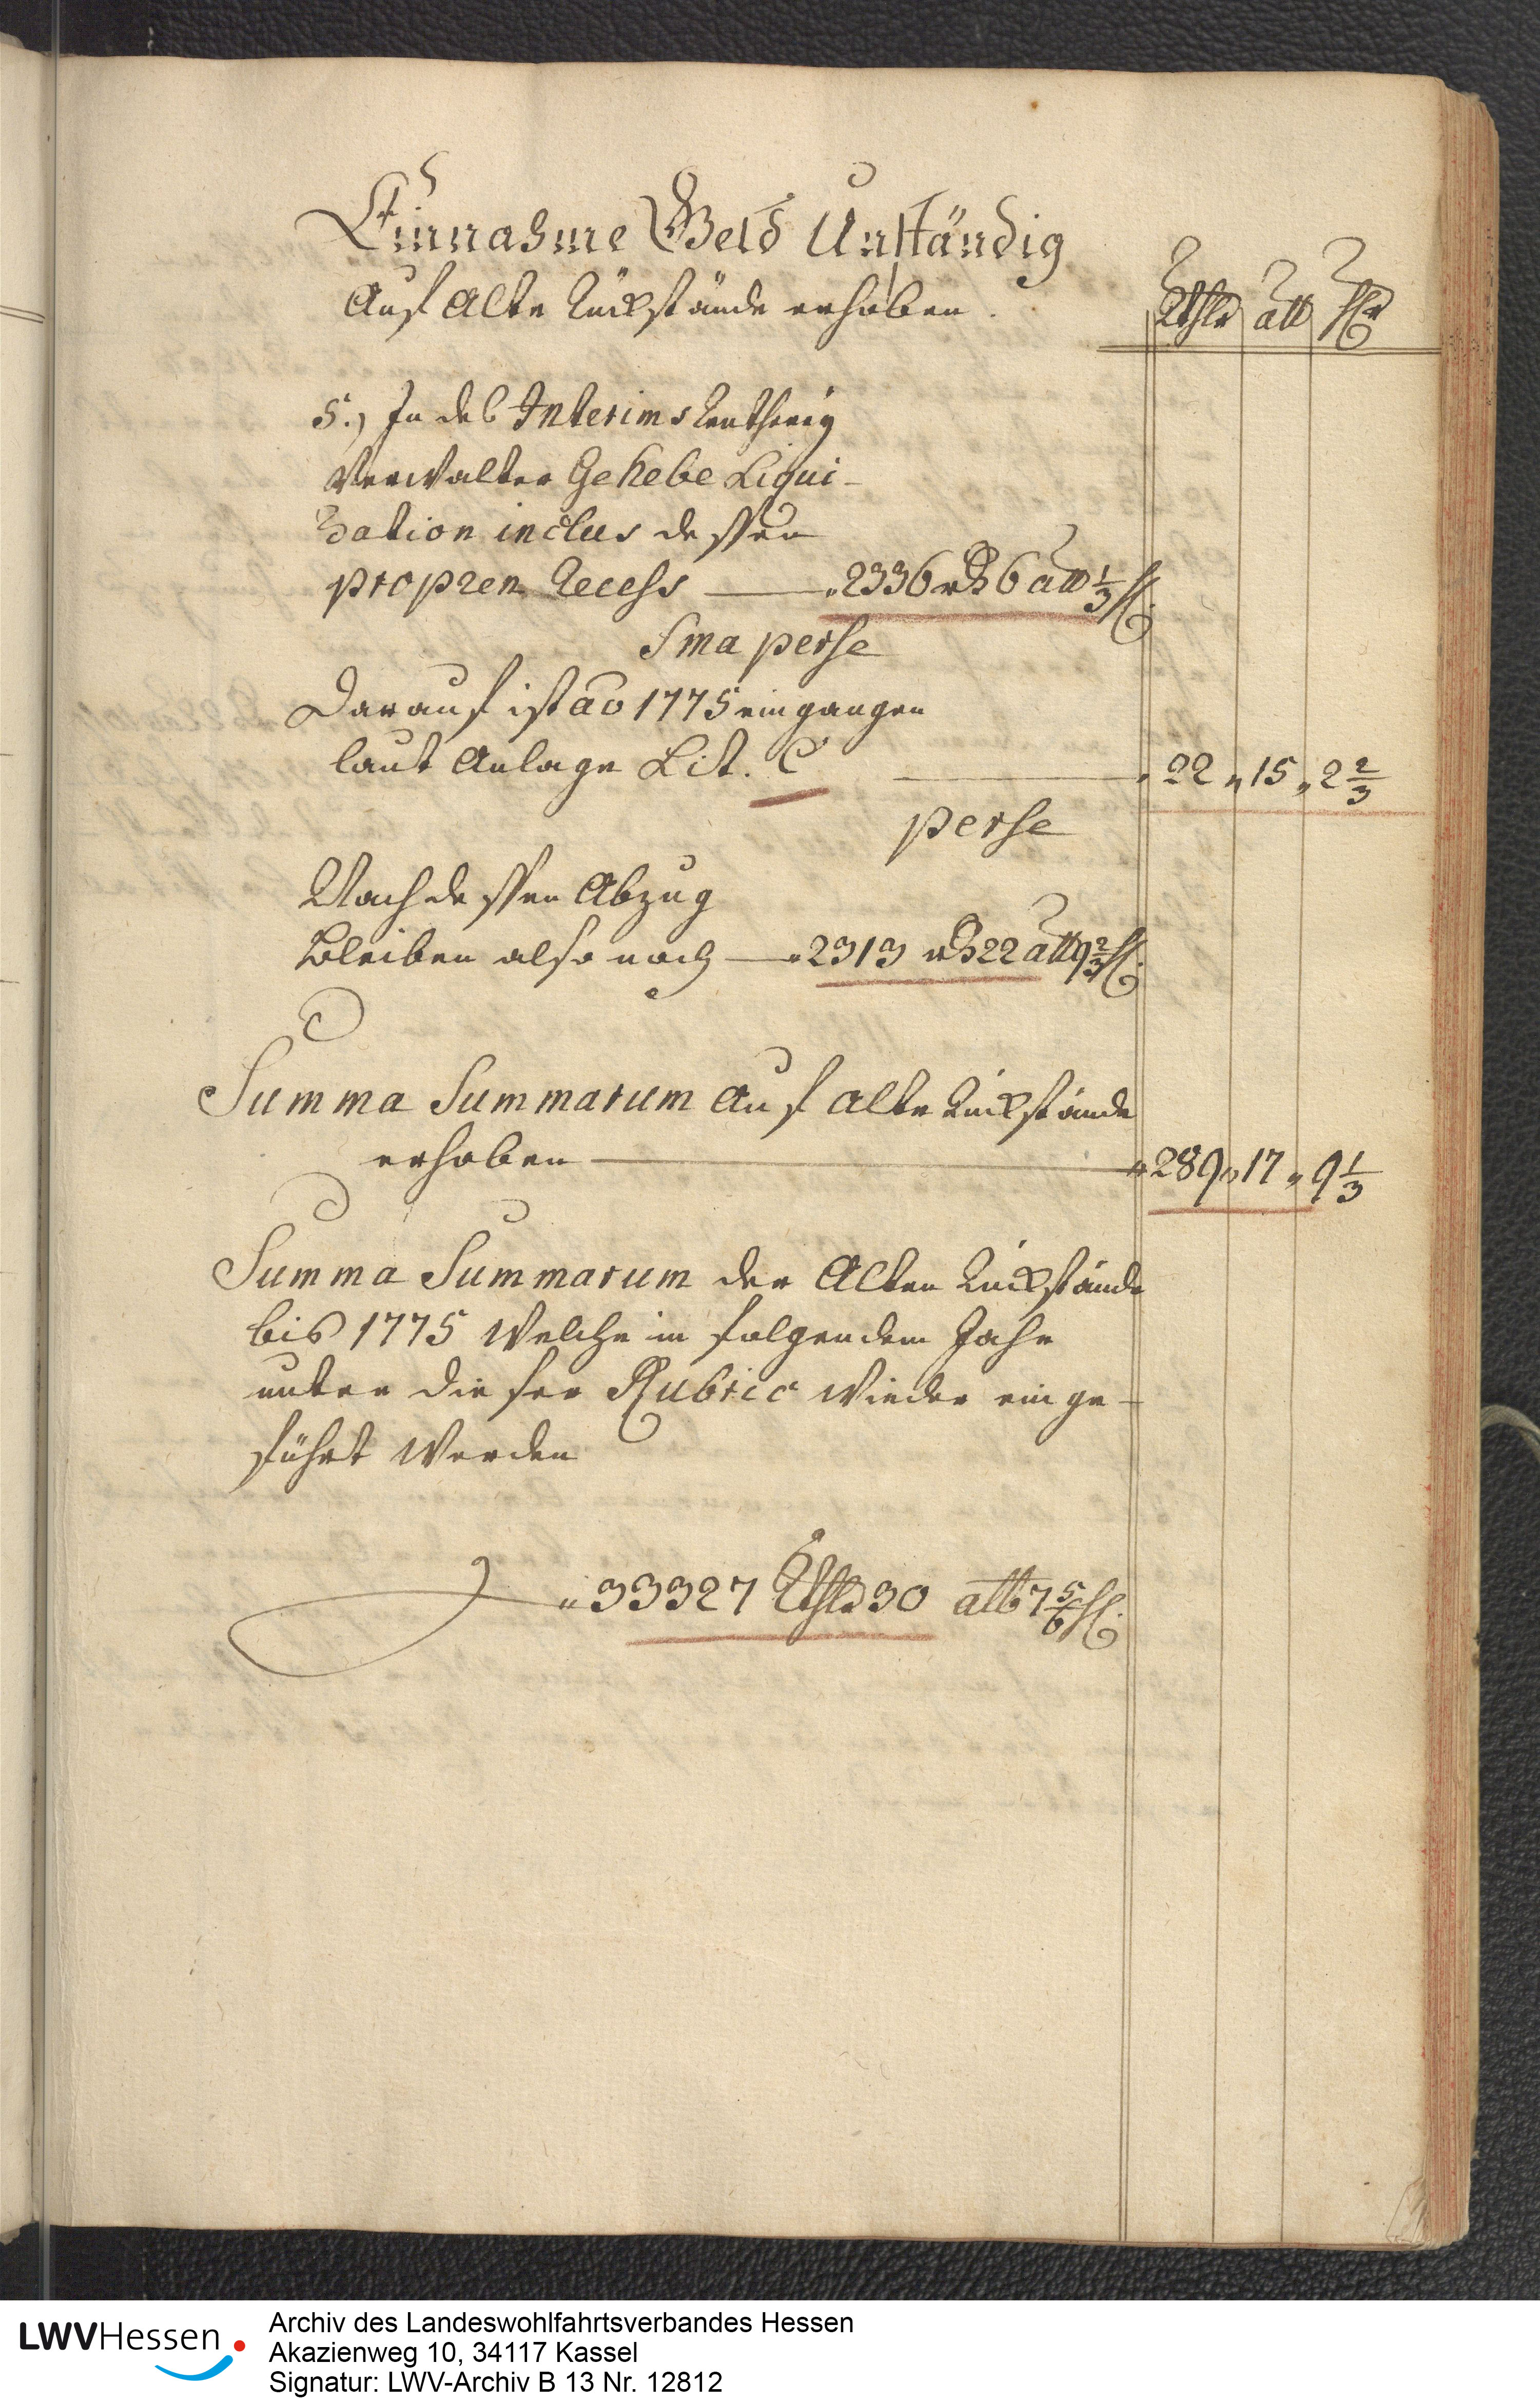 Einnahme Geld Unständig
Auf Alte Rückstände erhoben.
Rthlr alb hlr
5.) In des Interims
Verwalter Gehebe Liqui-
dation inclus dessen
propren Recess — 2336 rt 6 alb 1/3 hl.
Sma perse
Darauf ist ao 1775 eingangen
laut Anlage Lit. C — 22 „ 15 „ 2 2/3
perse
Nach dessen Abzug
bleiben also noch — 2313 rt 22 alb 9 2/3 hl.
Summa Summarum auf alte Rückstände
erhoben — 289 „ 17 „ 9 1/3
Summa Summarum der Alten Rückstände
bis 1775 welche in folgendem Jahr
unter dieser Rubric wieder einge-
führt werden
„ 33327 Rthlr 30 alb 7 5/6 hl.
LWVHessen
Archiv des Landeswohlfahrtsverbandes Hessen
Akazienweg 10, 34117 Kassel
Signatur: LWV-Archiv B 13 Nr. 12812